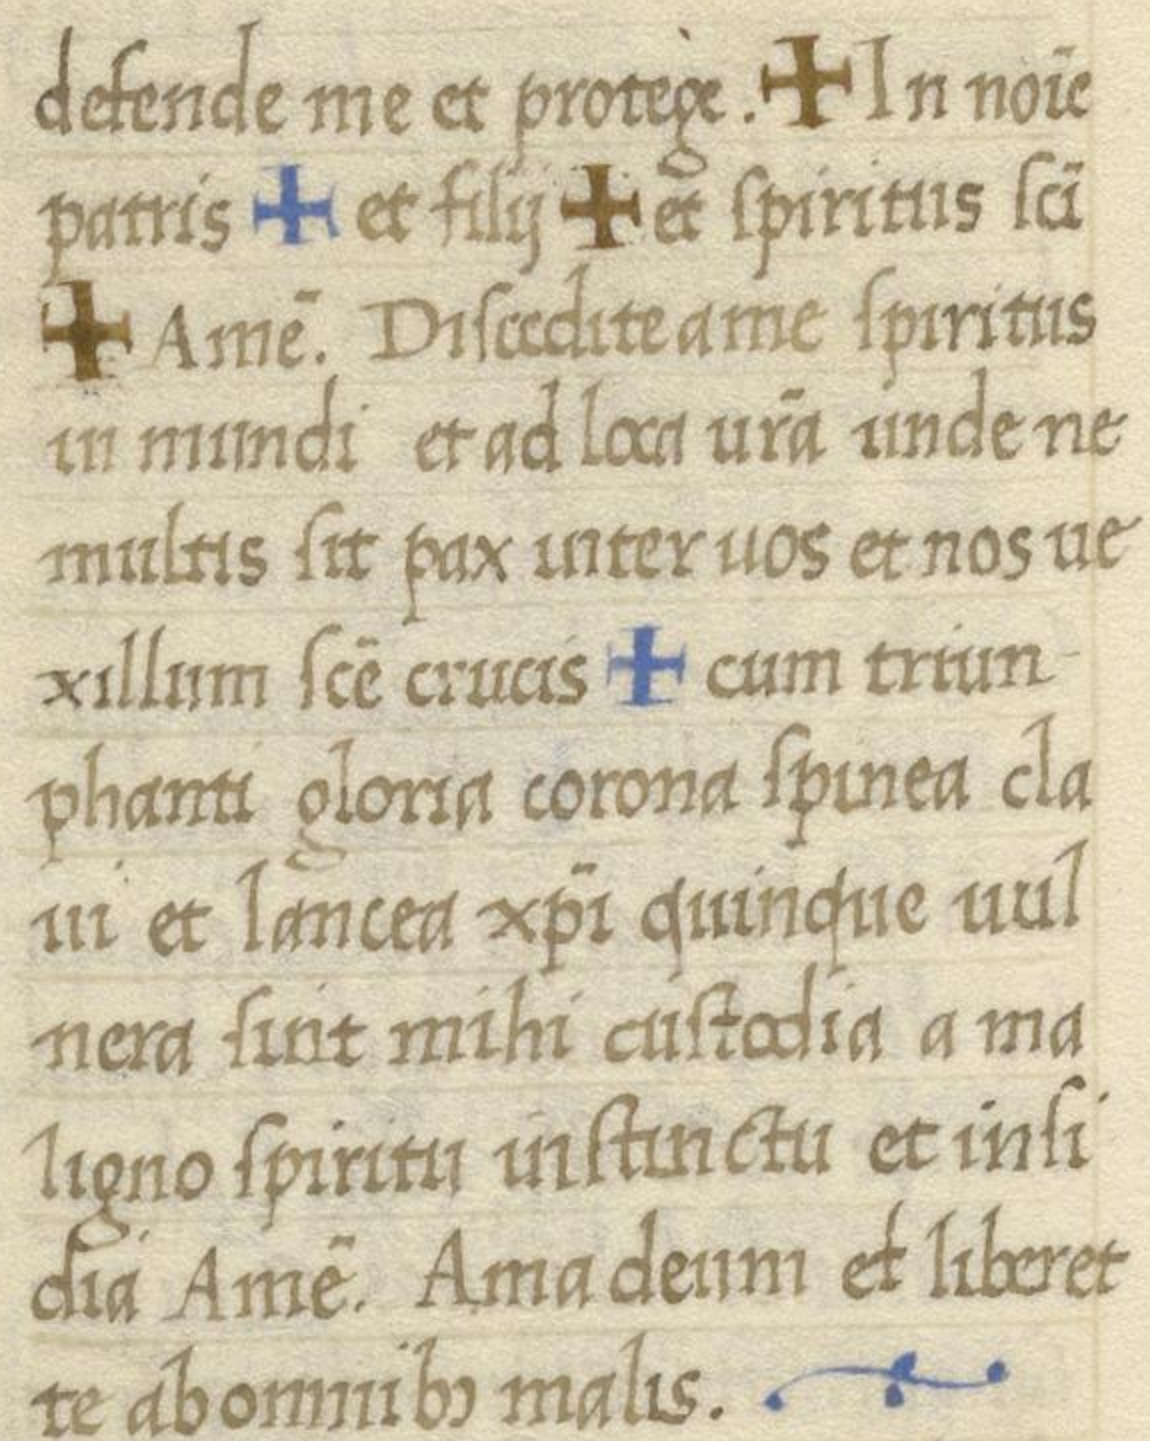 defende me et protege. ✠ In noīe
patris ✠ et filij ✠ et spiritus scī
✠ Amē. Discedite a me spiritus
in mundi et ad loca urā unde ne
multis sit pax inter uos et nos ue
xillum scē crucis ✠ cum triun-
phanti gloria corona spinea cla
ui et lancea xpī quinque uul
nera sint mihi custodia a ma
ligno spiritu instinctu et insi
dia Amē. Ama deum et liberet
te ab omnibꝫ malis.